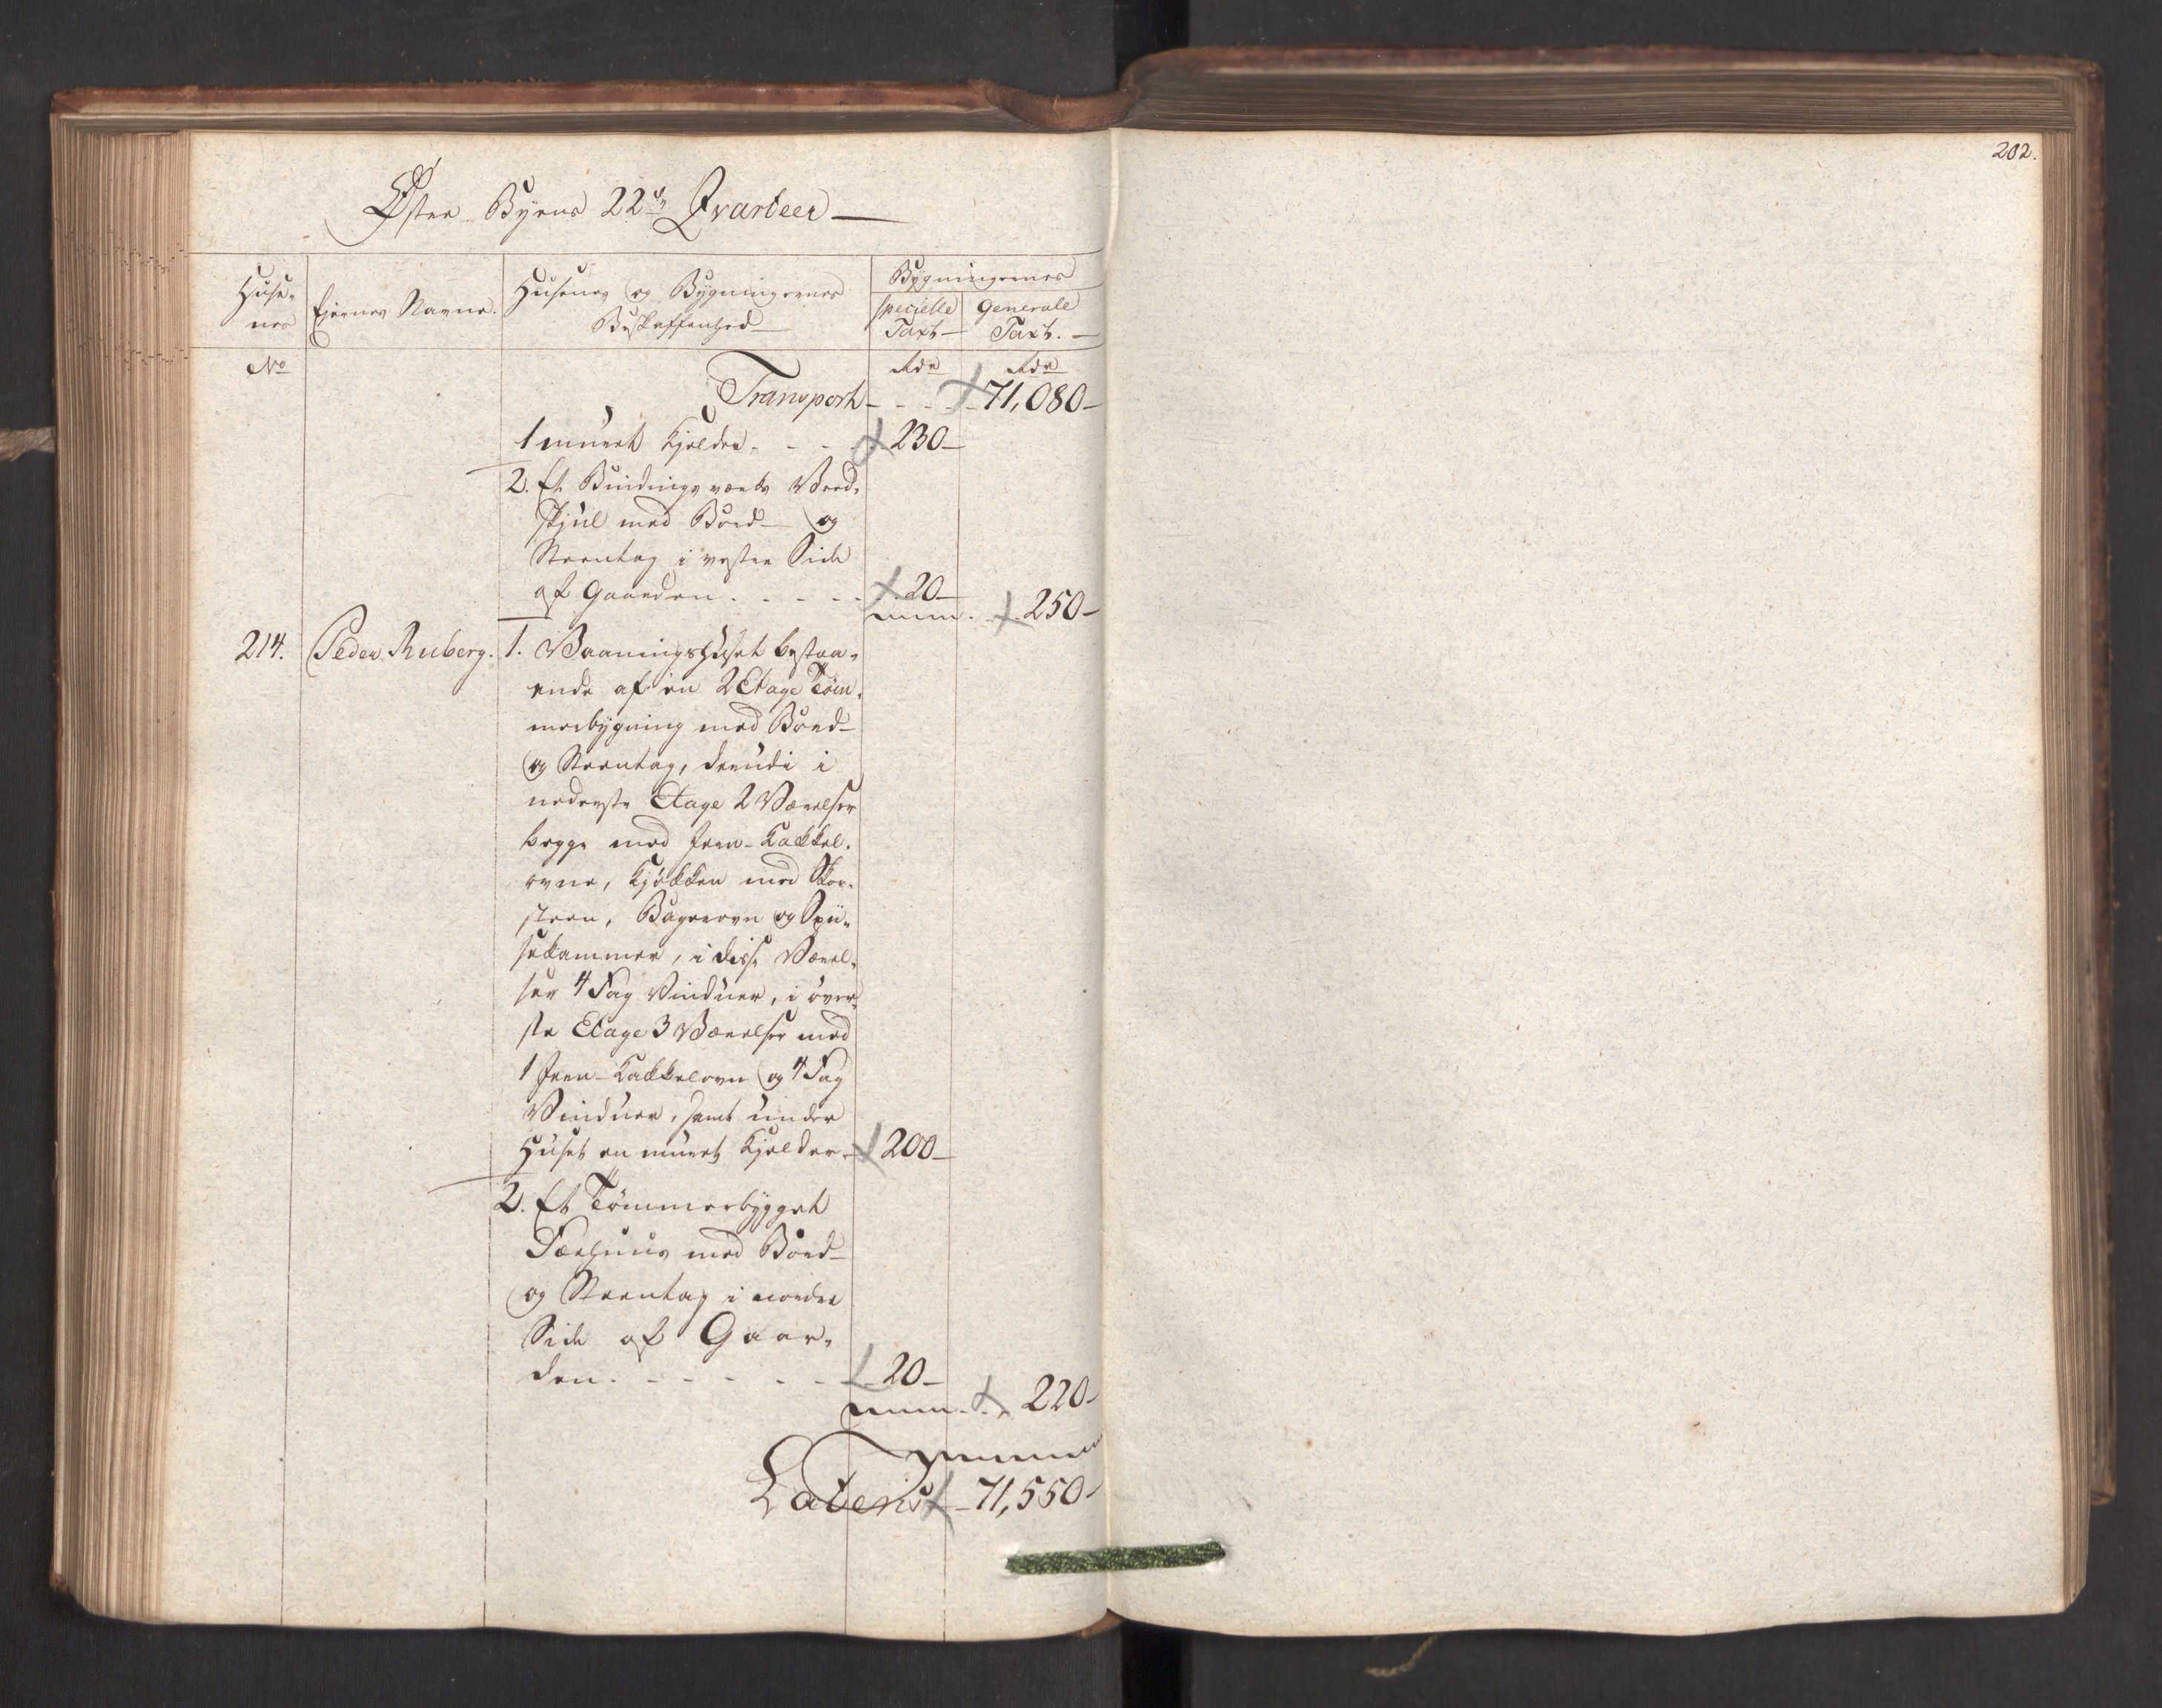 202.
Øster Byens 22de Qvarteer
Huse-
nes
Ejernes Navne.
Husenes og Bygningernes
Beskaffenhed
Bygningernes
specielle
Taxt
Generale
Taxt.
No
Rdr
Rdr
Transport - - - 71,080
1 muret Kjelder - - - 230
2. Et Bindingsværks Veed-
skjul med Bord- og
Steentag i vester Side
af Gaarden - - - - - 20
250
214. Peder Ruberg. 1. Vaaningshuset bestaa-
ende af en 2 Etage Tøm-
merbygning med Bord-
og Steentag, derudi i
nederste Etage 2 Værelser
begge med Jern-Kakkel-
ovne, Kjøkken med Skor-
steen, Bagerovn og Spii-
sekammer, i disse Værel-
ser 4 Fag Vinduer, i øver-
ste Etage 3 Værelser med
1 Jern-Kakkelovn og 4 Fag
Vinduer, samt under
Huset en muret Kjelder - 200
2. Et Tømmerbygget
Fæehuus med Bord-
og Steentag i nordre
Side af Gaar-
den - - - - - - 20
220
Lateris 71,550